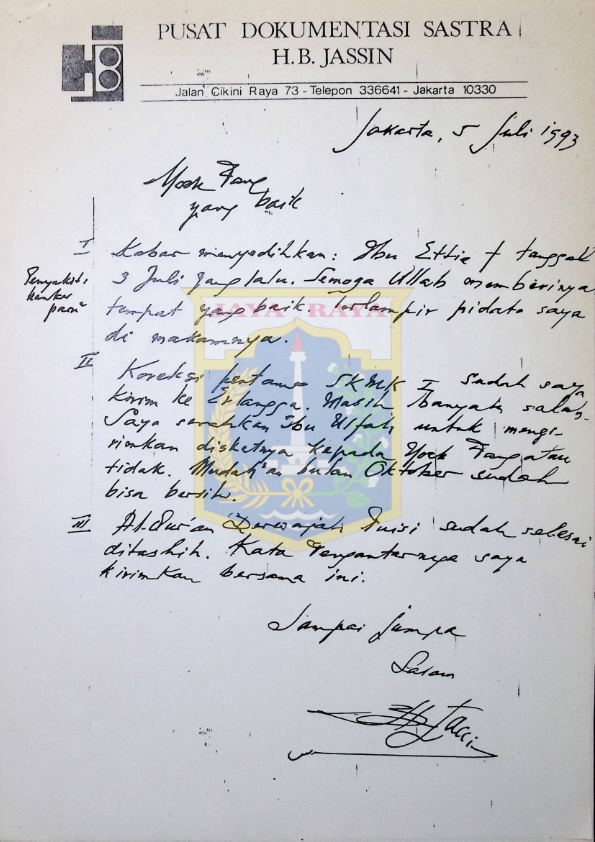 PUSAT DOKUMENTASI SASTRA
H.B. JASSIN
Jalan Cikini Raya 73 - Telepon 336641 - Jakarta 10330
Jakarta, 5 Juli 1993
Yock Fang
yang baik
I Kabar menyedihkan: Ibu Ettie † tanggal
Penyakit:
kanker
paru2
3 Juli yang lalu. Semoga Allah memberinya
tempat yang baik. Terlampir pidato saya
di makamnya.
II Koreksi pertama SKMK I sudah saya
kirim ke Erlangga. Masih banyak salah.
Saya serahkan Ibu Ulfah untuk mengi-
rimkan disketnya kepada Yock Fang atau
tidak. Mudah2an bulan Oktober sudah
bisa bersih.
III Al-Qur'an Berwajah Puisi sudah selesai
ditashih. Kata Pengantarnya saya
kirimkan bersama ini.
Sampai jumpa
Salam
HB Jassin
JAYA RAYA